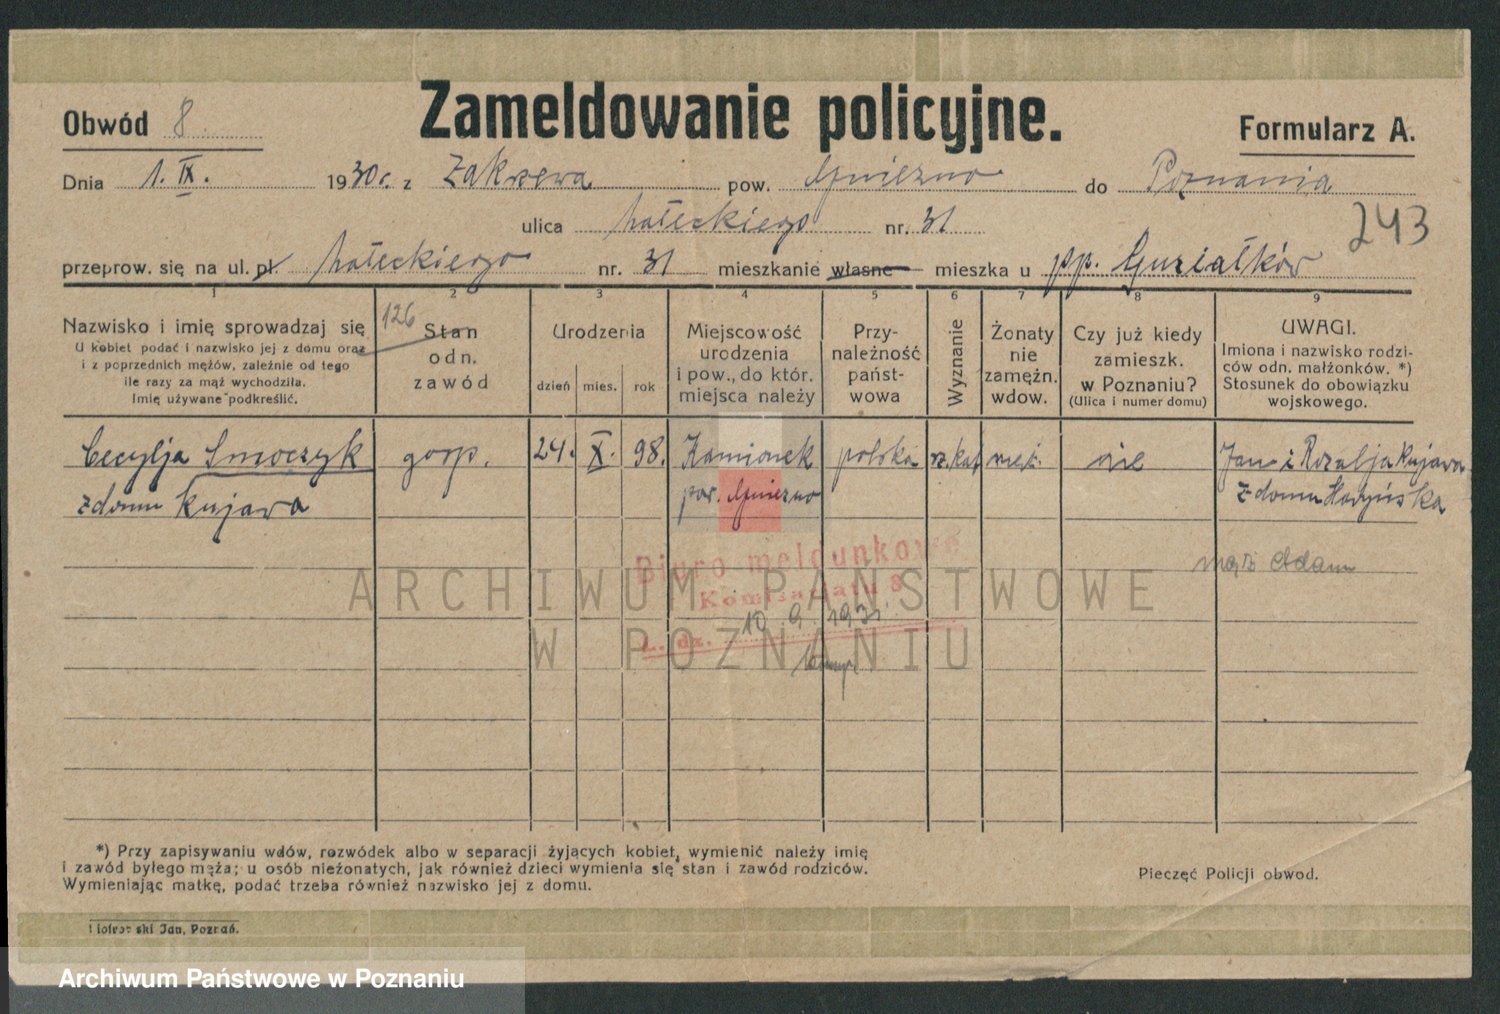 Zameldowanie policyjne.
Obwód 8
Formularz A.
Dnia 1. IX. 1930 r. z Zakrzewa pow. Gniezno do Poznania
ulica Małeckiego nr. 31
243
przeprow. się na ul. pl. Małeckiego nr. 31 mieszkanie własne mieszka u pp. Guziałków
1 2 3 4 5 6 7 8 9
126
Nazwisko i imię sprowadzaj się
U kobiet podać i nazwisko jej z domu oraz
i z poprzednich mężów, zależnie od tego
ile razy za mąż wychodziła.
Imię używane podkreślić.
Stan
odn.
zawód
Urodzenia
dzień mies. rok
Miejscowość
urodzenia
i pow., do któr.
miejsca należy
Przy-
należność
państ-
wowa
Wyznanie
Żonaty
nie
zamężn.
wdow.
Czy już kiedy
zamieszk.
w Poznaniu?
(Ulica i numer domu)
UWAGI.
Imiona i nazwisko rodzi-
ców odn. małżonków. *)
Stosunek do obowiązku
wojskowego.
Cecylja Smoczyk gosp. 24. X. 98. Kamionek polska rz. kat. nie
z domu Kujawa pow. Gniezno
Jan i Rozalja Kujawa
z domu
mąż Adam
Biuro meldunkowe
Komisariatu 8
L. dz. 10 9 1931
ARCHIWUM PAŃSTWOWE
W POZNANIU
*) Przy zapisywaniu wdów, rozwódek albo w separacji żyjących kobiet, wymienić należy imię
i zawód byłego męża; u osób nieżonatych, jak również dzieci wymienia się stan i zawód rodziców.
Wymieniając matkę, podać trzeba również nazwisko jej z domu.
Pieczęć Policji obwod.
Jan, Poznań.
Archiwum Państwowe w Poznaniu